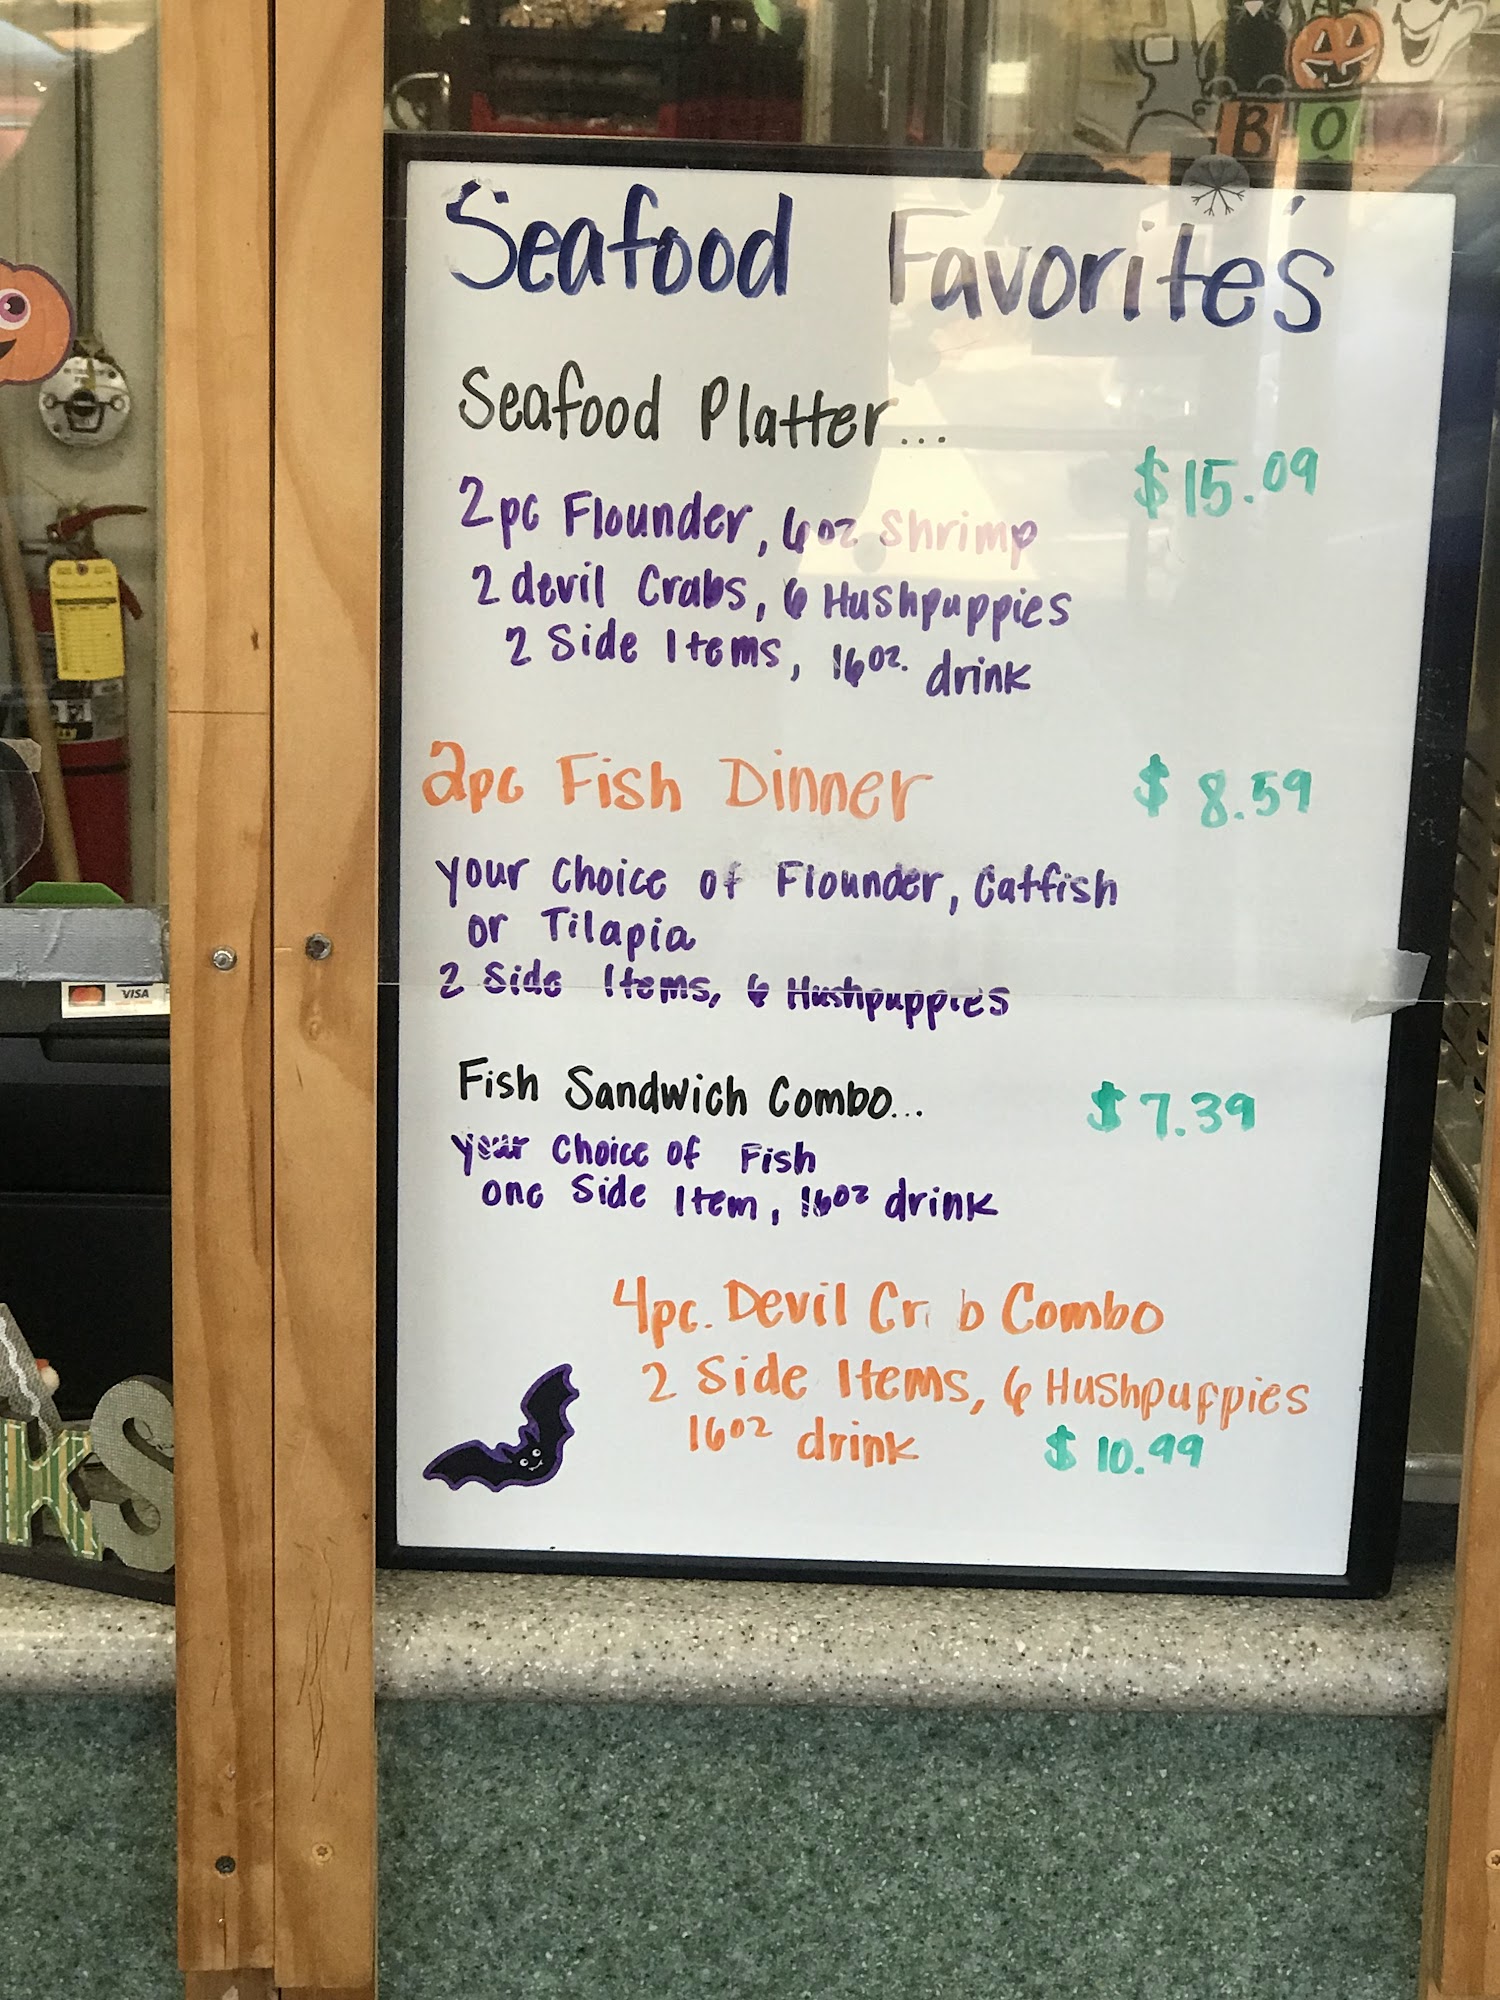 BOO
Seafood Favorite's
Seafood Platter...
$15.09
2pc Flounder, 6oz Shrimp
2 devil Crabs, 6 Hushpuppies
2 Side Items, 16oz. drink
2pc Fish Dinner $8.59
your Choice of Flounder, Catfish
or Tilapia
2 Side Items, 6 Hushpuppies
VISA
Fish Sandwich Combo... $7.39
your Choice of Fish
one Side Item, 16oz drink
4pc. Devil Cr b Combo
2 Side Items, 6 Hushpuppies
16oz drink $10.99
KS